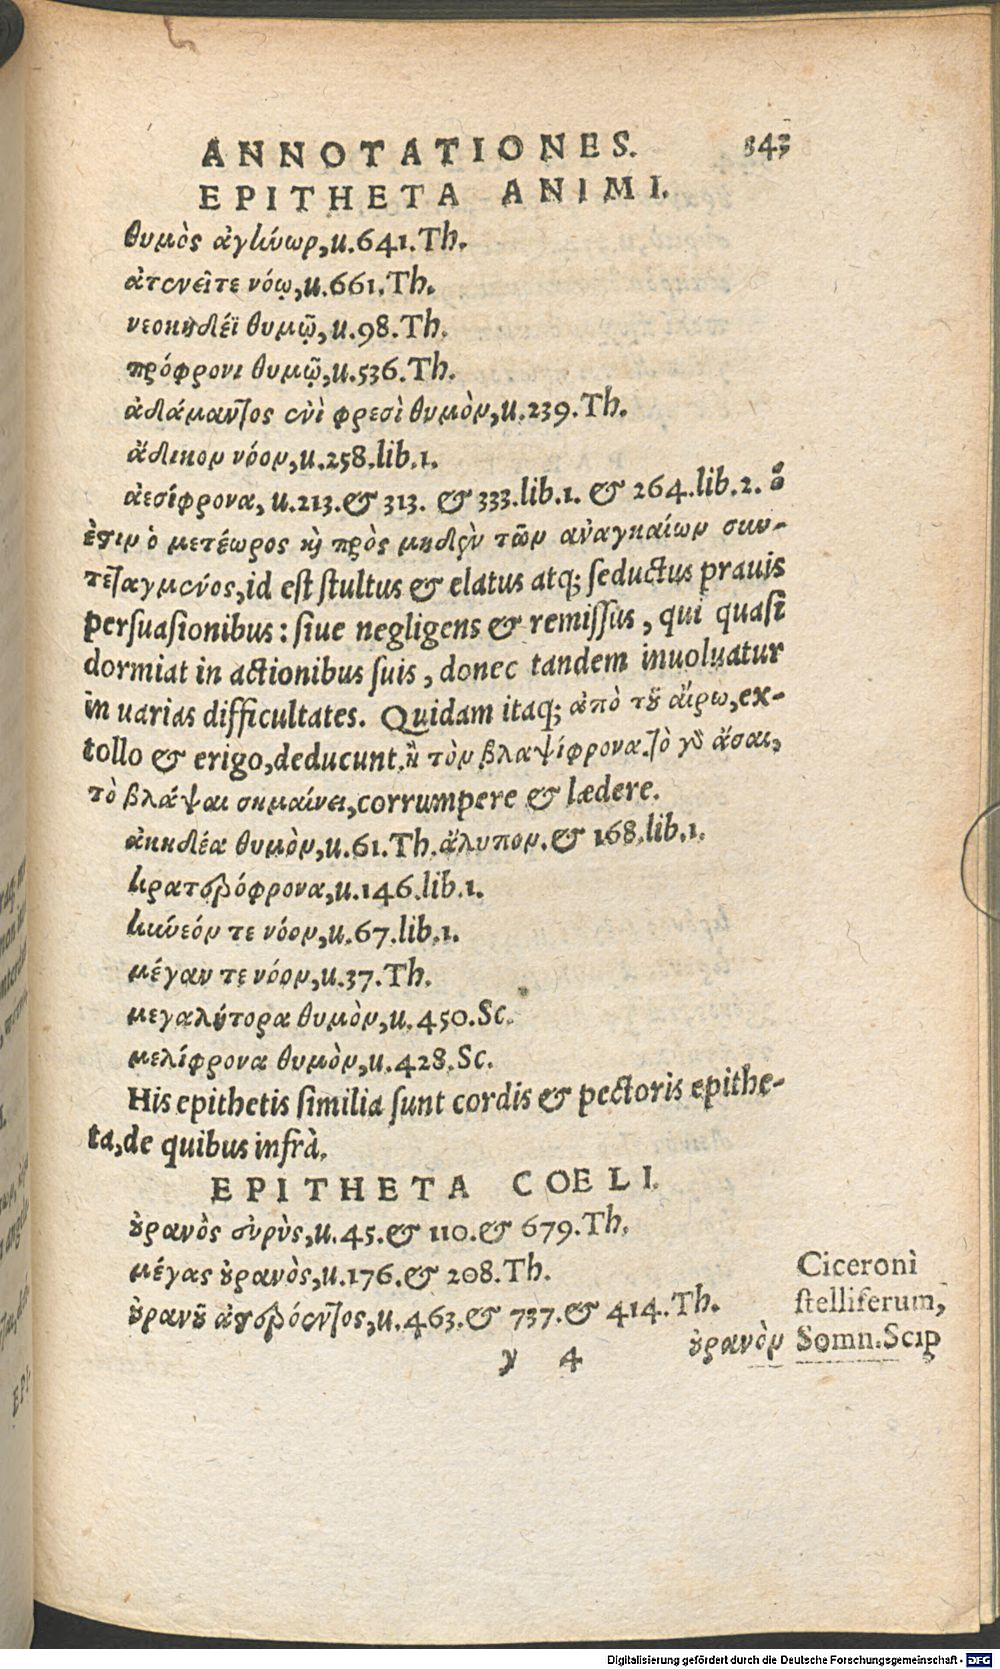 ANNOTATIONES. 343
EPITHETA ANIMI.
θυμὸς ἀγήνωρ, u. 641. Th.
ἀτενεῖ τε νόῳ, u. 661. Th.
νεοκηδέϊ θυμῷ, u. 98. Th.
πρόφρονι θυμῷ, u. 536. Th.
ἀδάμαντος ἐνὶ φρεσὶ θυμὸν, u. 239. Th.
ἄδικον νόον, u. 258. lib. 1.
ἀεσίφρονα, u. 213. & 313. & 333. lib. 1. & 264. lib. 2. ὅ
ἐστιν ὁ μετέωρος κỳ πρὸς μηδὲν τῶν ἀναγκαίων συν-
τεταγμένος, id est stultus & elatus atq; seductus prauis
persuasionibus: siue negligens & remissus, qui quasi
dormiat in actionibus suis, donec tandem inuoluatur
in uarias difficultates. Quidam itaq; ἀπὸ τȣ͂ αἴρω, ex-
tollo & erigo, deducunt. ἢ τὸν βλαψίφρονα. τὸ γδ ἄσαι,
τὸ βλάψαι σημαίνει, corrumpere & lædere.
ἀκηδέα θυμὸν, u. 61. Th. ἄλυπον. & 168. lib. 1.
κρατερόφρονα, u. 146. lib. 1.
κύνεόν τε νόον, u. 67. lib. 1.
μέγαν τε νόον, u. 37. Th.
μεγαλήτορα θυμὸν, u. 450. Sc.
μελίφρονα θυμὸν, u. 428. Sc.
His epithetis similia sunt cordis & pectoris epithe-
ta, de quibus infrà.
EPITHETA COELI.
ȣ̓ρανὸς εὐρὺς, u. 45. & 110. & 679. Th.
μέγας ȣ̓ρανὸς, u. 176. & 208. Th.
ȣ̓ρανȣ͂ ἀστερόεντος, u. 463. & 737. & 414. Th.
Ciceroni
stelliferum,
Somn. Scip
y 4 ȣ̓ρανὸν
Digitalisierung gefördert durch die Deutsche Forschungsgemeinschaft - DFG